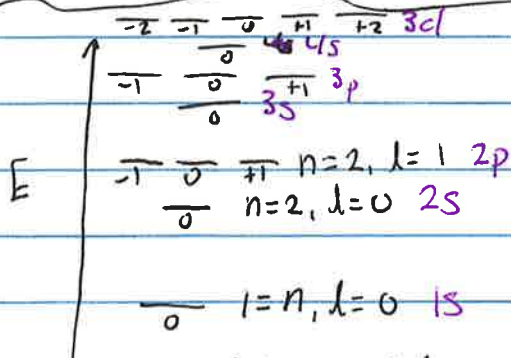 -2 -1 0 +1 +2 3d
0 4s
-1 0 +1 3p
0 3s
E
-1 0 +1 n=2, l=1 2p
0 n=2, l=0 2s
0 1=n, l=0 1s